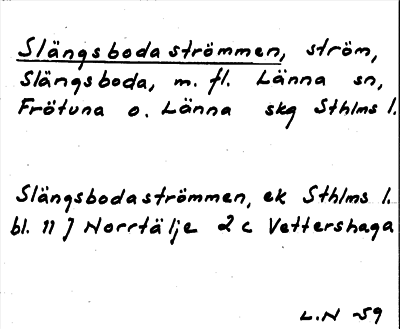 Slängsbodaströmmen, ström,
Slängsboda, m. fl. Länna sn,
Frötuna o. Länna skg Sthlms l.
Slängsbodaströmmen, ek Sthlms l.
bl. 11 J Norrtälje 2c Vettershaga
L.N -59